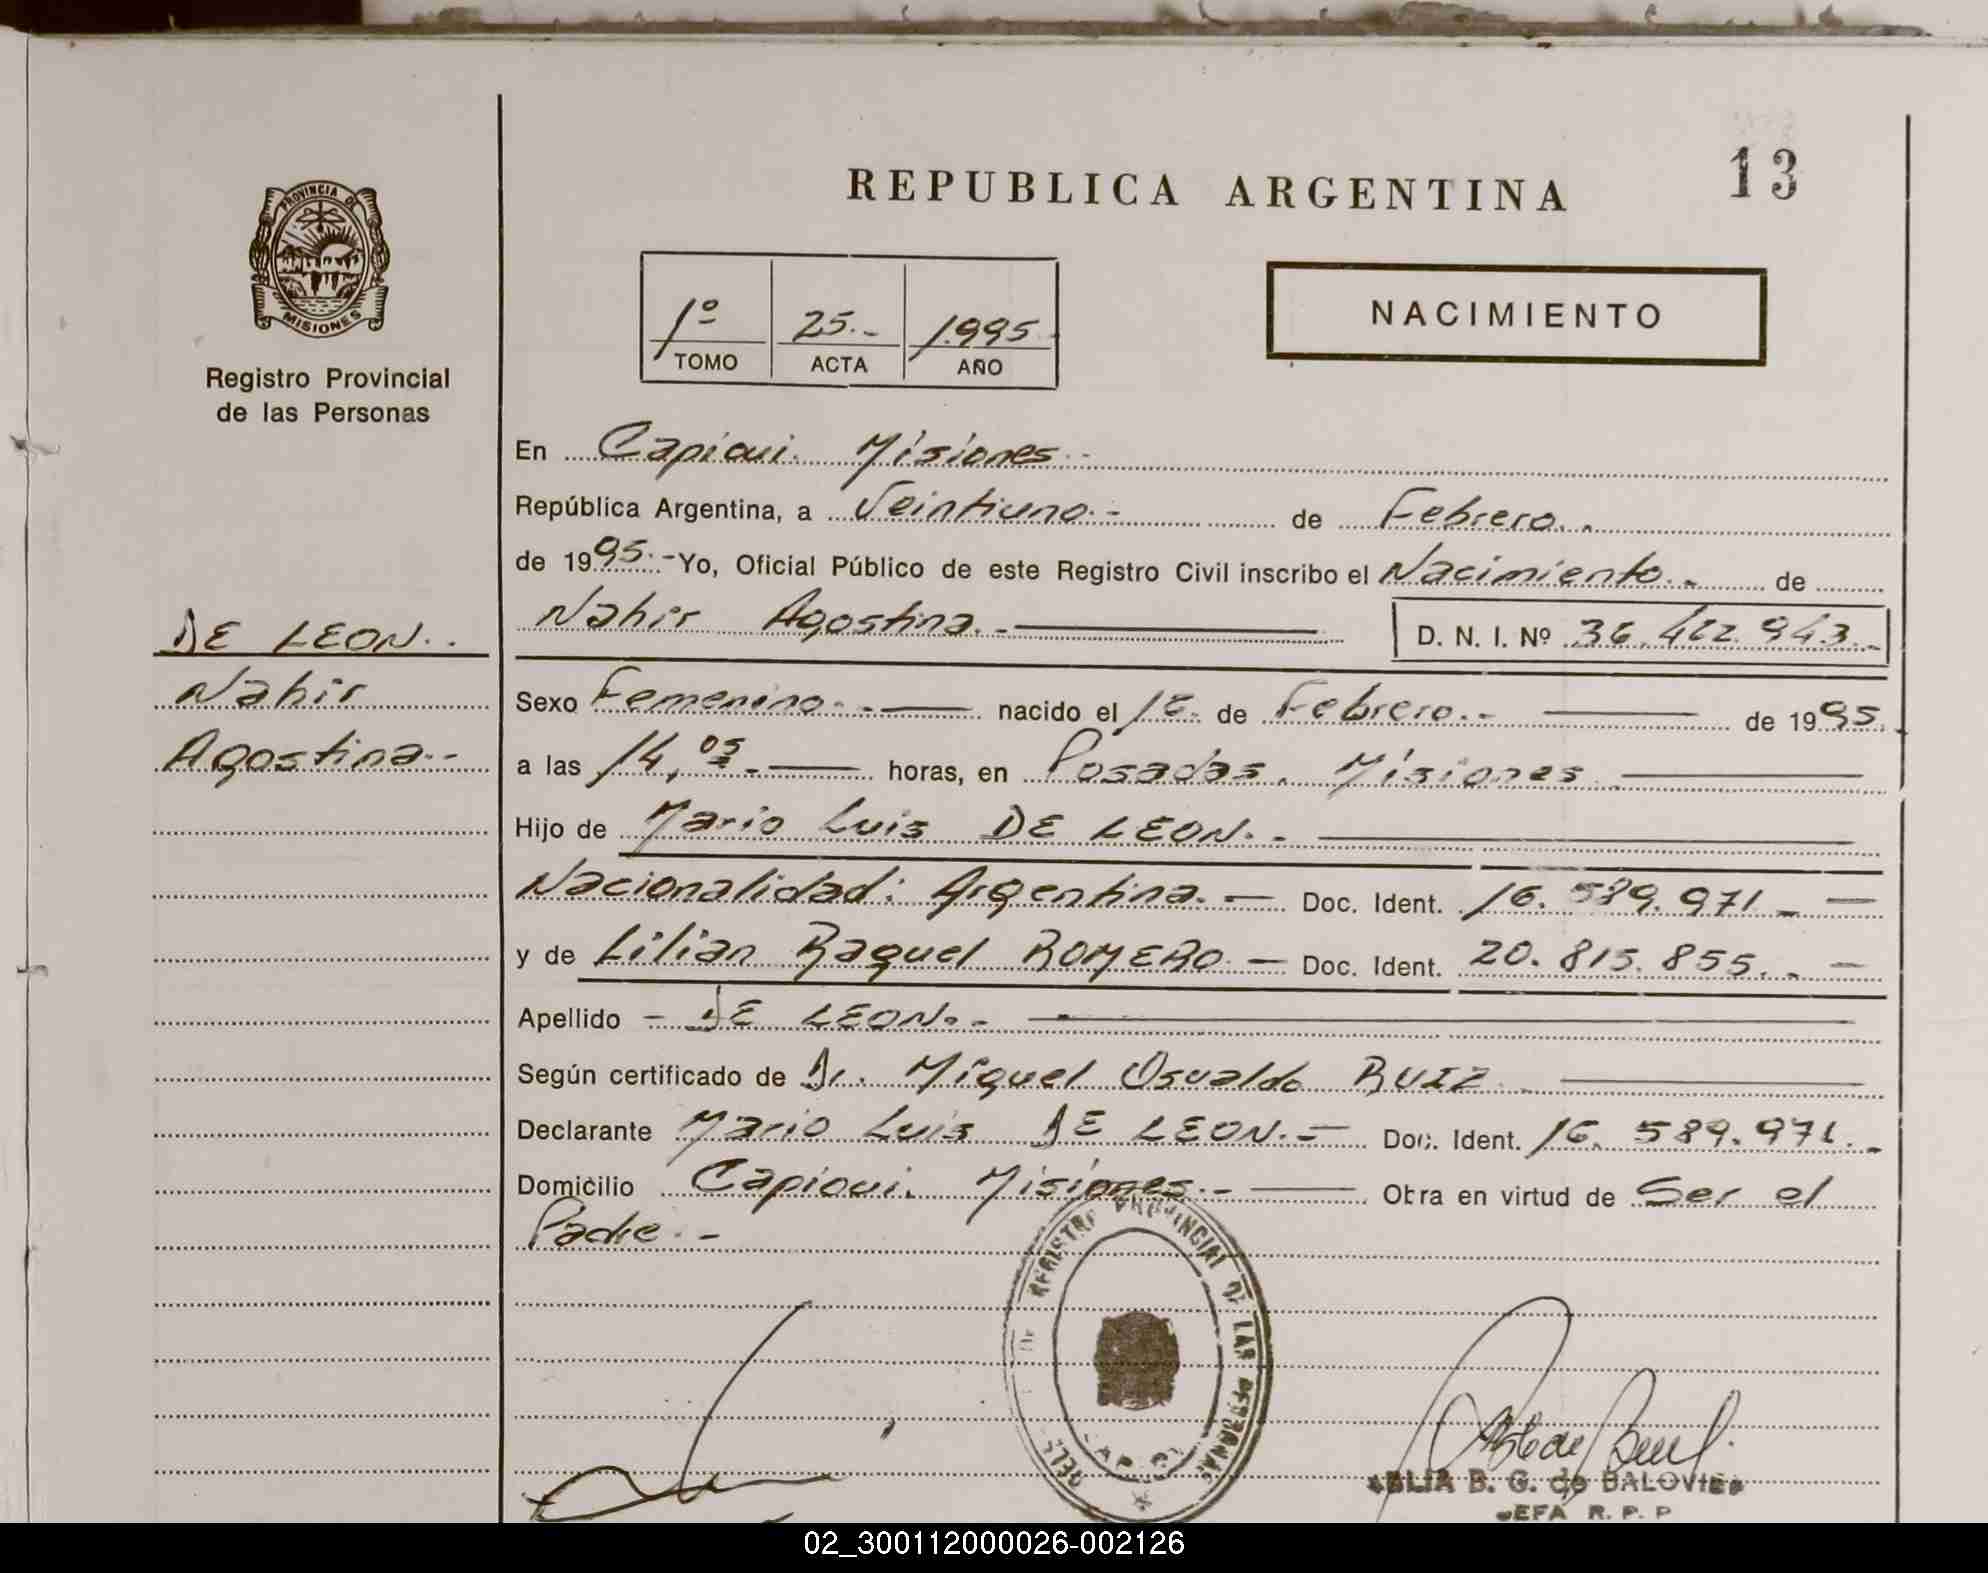 REPUBLICA ARGENTINA
13
PROVINCIA DE
MISIONES
Registro Provincial
de las Personas
1º 25.- 1995
TOMO ACTA AÑO
NACIMIENTO
En Capioui. Misiones.-
República Argentina, a Veintiuno.- de Febrero.
de 1995.- Yo, Oficial Público de este Registro Civil inscribo el Nacimiento.- de
Nahir Agostina.- D. N. I. Nº 36.422.943.-
DE LEON..
Nahir
Agostina.-
Sexo Femenino.- nacido el de Febrero.- de 1995.
a las 14,05.- horas, en Posadas. Misiones
Hijo de Mario Luis DE LEON.-
Nacionalidad: Argentina.- Doc. Ident. 16.589.971.-
y de Lilian Raquel ROMERO - Doc. Ident. 20.815.855.-
Apellido - DE LEON.-
Según certificado de Dr. Miguel Osvaldo RUIZ
Declarante Mario Luis DE LEON.- Doc. Ident. 16.589.971.-
Domicilio Capioui. Misiones.- Obra en virtud de Ser el
Padre.-
REGISTRO PROVINCIAL DE LAS PERSONAS
B. G. de
R. P. P
02_300112000026-002126